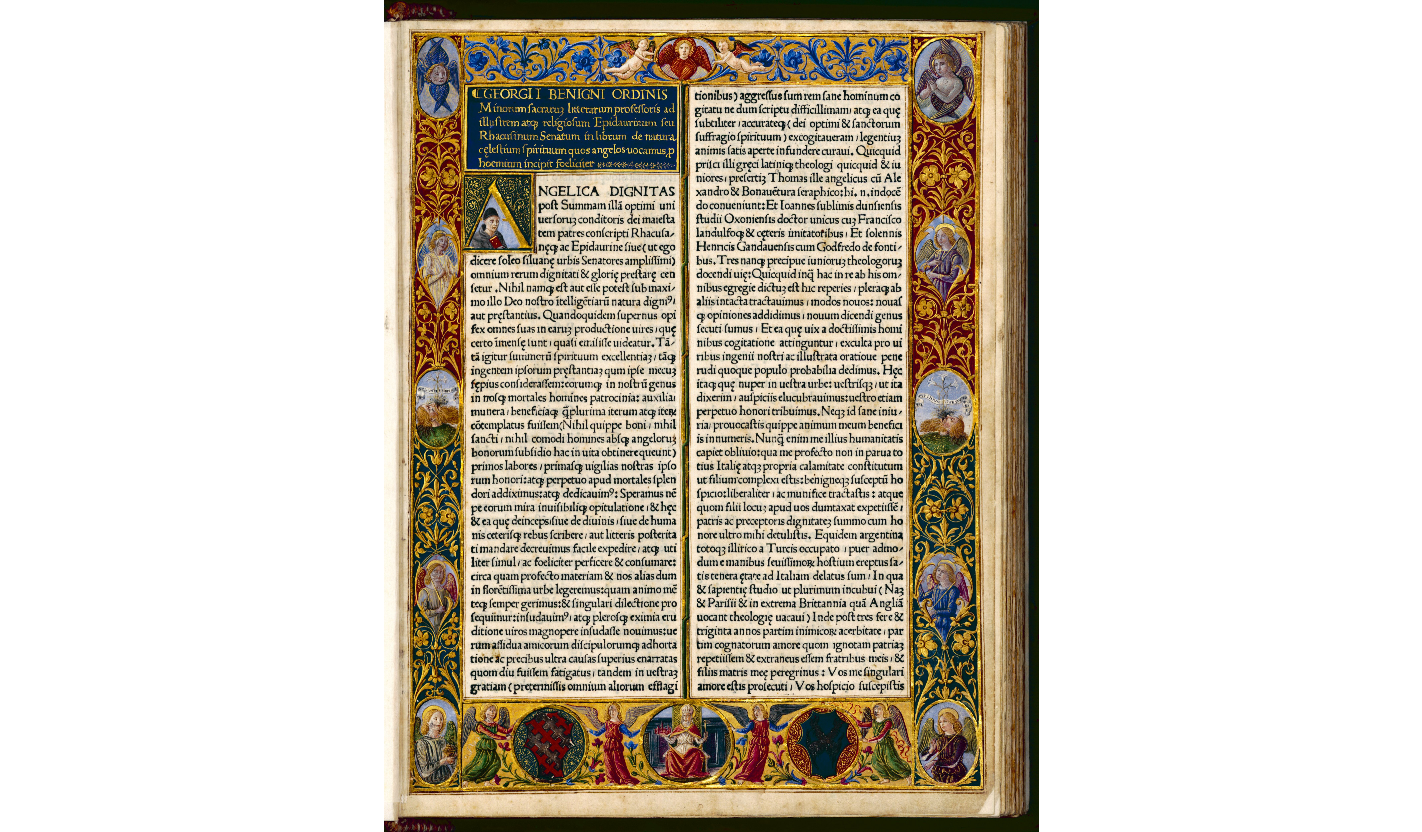 GEORGII BENIGNI ORDINIS
Minorum sacraruꝫ litterarum professoris ad
illustrem atqꝫ religiosum Epidaurinum seu
Rhacusinum Senatum in librum de natura
cęlestium spirituum quos angelos uocamus, p
hoemium incipit foeliciter
ANGELICA DIGNITAS
post Summam illã optimi uni
uersoruꝫ conditoris dei maiesta
tem patres conscripti Rhacusa-
nęqꝫ ac Epidaurine siue (ut ego
dicere soleo siluanę urbis Senatores amplissimi)
omnium rerum dignitati & glorię prestare cen
setur . Nihil namqꝫ est aut esse potest sub maxi-
mo illo Deo nostro ĩtelligẽtiarũ natura digniꝰ,
aut pręstantius. Quandoquidem supernus opi
fex omnes suas in earuꝫ productione uires, quę
certo ĩmensę sunt, quasi emisisse uideatur. Tã-
tã igitur summorũ spirituum excellentiaꝫ, tãqꝫ
ingentem ipsorum pręstantiaꝫ qum ipse mecuꝫ
sępius considerassem: eorumqꝫ in nostrũ genus
in nosqꝫ mortales homines patrocinia: auxilia:
munera, beneficiaqꝫ q̃plurima iterum atqꝫ iteꝝ
cõtemplatus fuissem (Nihil quippe boni, nihil
sancti, nihil comodi homines absqꝫ angeloruꝫ
bonorum subsidio hac in uita obtinere queunt)
primos labores, primasqꝫ uigilias nostras ipso
rum honori: atqꝫ perpetuo apud mortales splen
dori addiximus: atqꝫ dedicauimꝰ: Speramus nẽ
pe eorum mira inuisibiliqꝫ opitulatione, & hęc
& ea quę deinceps siue de diuinis, siue de huma
nis ceterisqꝫ rebus scribere, aut litteris posterita
ti mandare decreuimus facile expedire, atqꝫ uti
liter simul, ac foeliciter perficere & consumare:
circa quam profecto materiam & nos alias dum
in florẽtissima urbe legeremus: quam animo mẽ
teqꝫ semper gerimus: & singulari dilectione pro
sequimur: insudauimꝰ, atqꝫ plerosqꝫ eximia eru
ditione uiros magnopere insudasse nouimus: ue
rum assidua amicorum discipulorumqꝫ adhorta
tione ac precibus ultra causas superius enarratas
quom diu fuissem fatigatus, tandem in uestraꝫ
gratiam (pretermissis omnium aliorum efflagi
tionibus) aggressus sum rem sane hominum co
gitatu ne dum scriptu difficillimam, atqꝫ ea quę
subtiliter, accurateqꝫ (dei optimi & sanctorum
suffragio spirituum) excogitaueram, legentiuꝫ
animis satis aperte infundere curaui. Quicquid
prisci illi gręci latiniqꝫ theologi quicquid & iu
niores, presertiꝫ Thomas ille angelicus cũ Ale
xandro & Bonauẽtura seraphico: hi. n. indocẽ
do conueniunt: Et Ioannes sublimis dunsiensis
studii Oxoniensis doctor unicus cuꝫ Francisco
landulfoqꝫ & cęteris imitatoribus, Et solennis
Henricis Gandauensis cum Godfredo de fonti-
bus. Tres nanqꝫ precipue iunioruꝫ theologoruꝫ
docendi uię: Quicquid inq̃ hac in re ab his om-
nibus egregie dictuꝫ est hic reperies, pleraqꝫ ab
aliis intacta tractauimus, modos nouos: nouas
qꝫ opiniones addidimus, nouum dicendi genus
secuti sumus, Et ea quę uix a doctissimis homi
nibus cogitatione attinguntur, exculta pro ui
ribus ingenii nostri ac illustrata oratione pene
rudi quoque populo probabilia dedimus. Hęc
itaqꝫ quę nuper in uestra urbe: uestrisqꝫ, ut ita
dixerim, auspiciis elucubrauimus: uestro etiam
perpetuo honori tribuimus. Neqꝫ id sane iniu-
ria, prouocastis quippe animum meum benefici
is innumeris. Nunq̃ enim me illius humanitatis
capiet obliuio: qua me profecto non in parua to
tius Italię atqꝫ propria calamitate constitutum
ut filium complexi estis: benigneqꝫ susceptũ ho
spicio: liberaliter, ac munifice tractastis : atque
quom filii locuꝫ apud uos dumtaxat expetiissẽ,
patris ac preceptoris dignitateꝫ summo cum ho
nore ultro mihi detulistis. Equidem argentina
totoqꝫ illirico a Turcis occupato, puer admo-
dum e manibus seuissimoꝝ hostium ereptus sa-
tis tenera ętate ad Italiam delatus sum, In qua
& sapientię studio ut plurimum incubui (Naꝫ
& Parisii & in extrema Brittannia quã Angliã
uocant theologię uacaui) Inde post tres fere &
triginta annos partim inimicoꝝ acerbitate, par
tim cognatorum amore quom ignotam patriaꝫ
repetiissem & extraneus essem fratribus meis, &
filiis matris meę peregrinus : Vos me singulari
amore estis prosecuti, Vos hospicio suscepistis